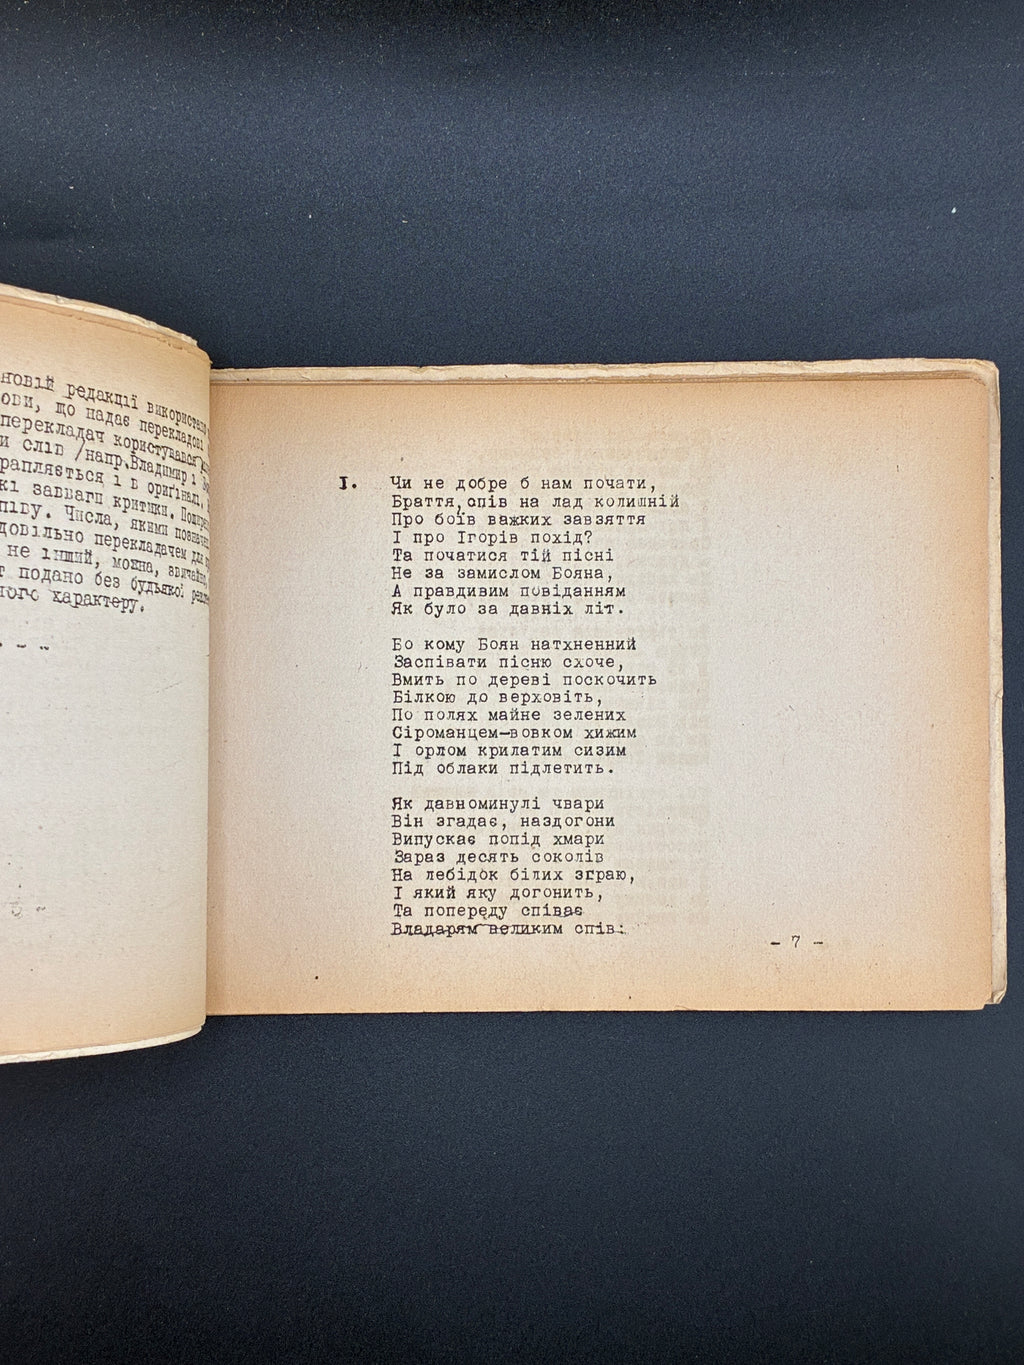 новій редакції використано
ови, що надає перекладові
перекладач користувався
и слів /напр.Владимир і
рапляється і в оригіналі.
кі завваги критики.
піву. Числа, якими позначені
довільно перекладачем для
не інший, можна, звичайно,
т подано без будьякої
ного характеру.
I. Чи не добре б нам почати,
Браття,спів на лад колишній
Про боїв важких завзяття
І про Ігорів похід?
Та початися тій пісні
Не за замислом Бояна,
А правдивим повіданням
Як було за давніх літ.
Бо кому Боян натхненний
Заспівати пісню схоче,
Вмить по дереві поскочить
Білкою до верховіть,
По полях майне зелених
Сіроманцем-вовком хижим
І орлом крилатим сизим
Під облаки підлетить.
Як давноминулі чвари
Він згадає, наздогони
Випускає попід хмари
Зараз десять соколів
На лебідок білих зграю,
І який яку догонить,
Та попереду співає
Владарям великим спів.
- 7 -